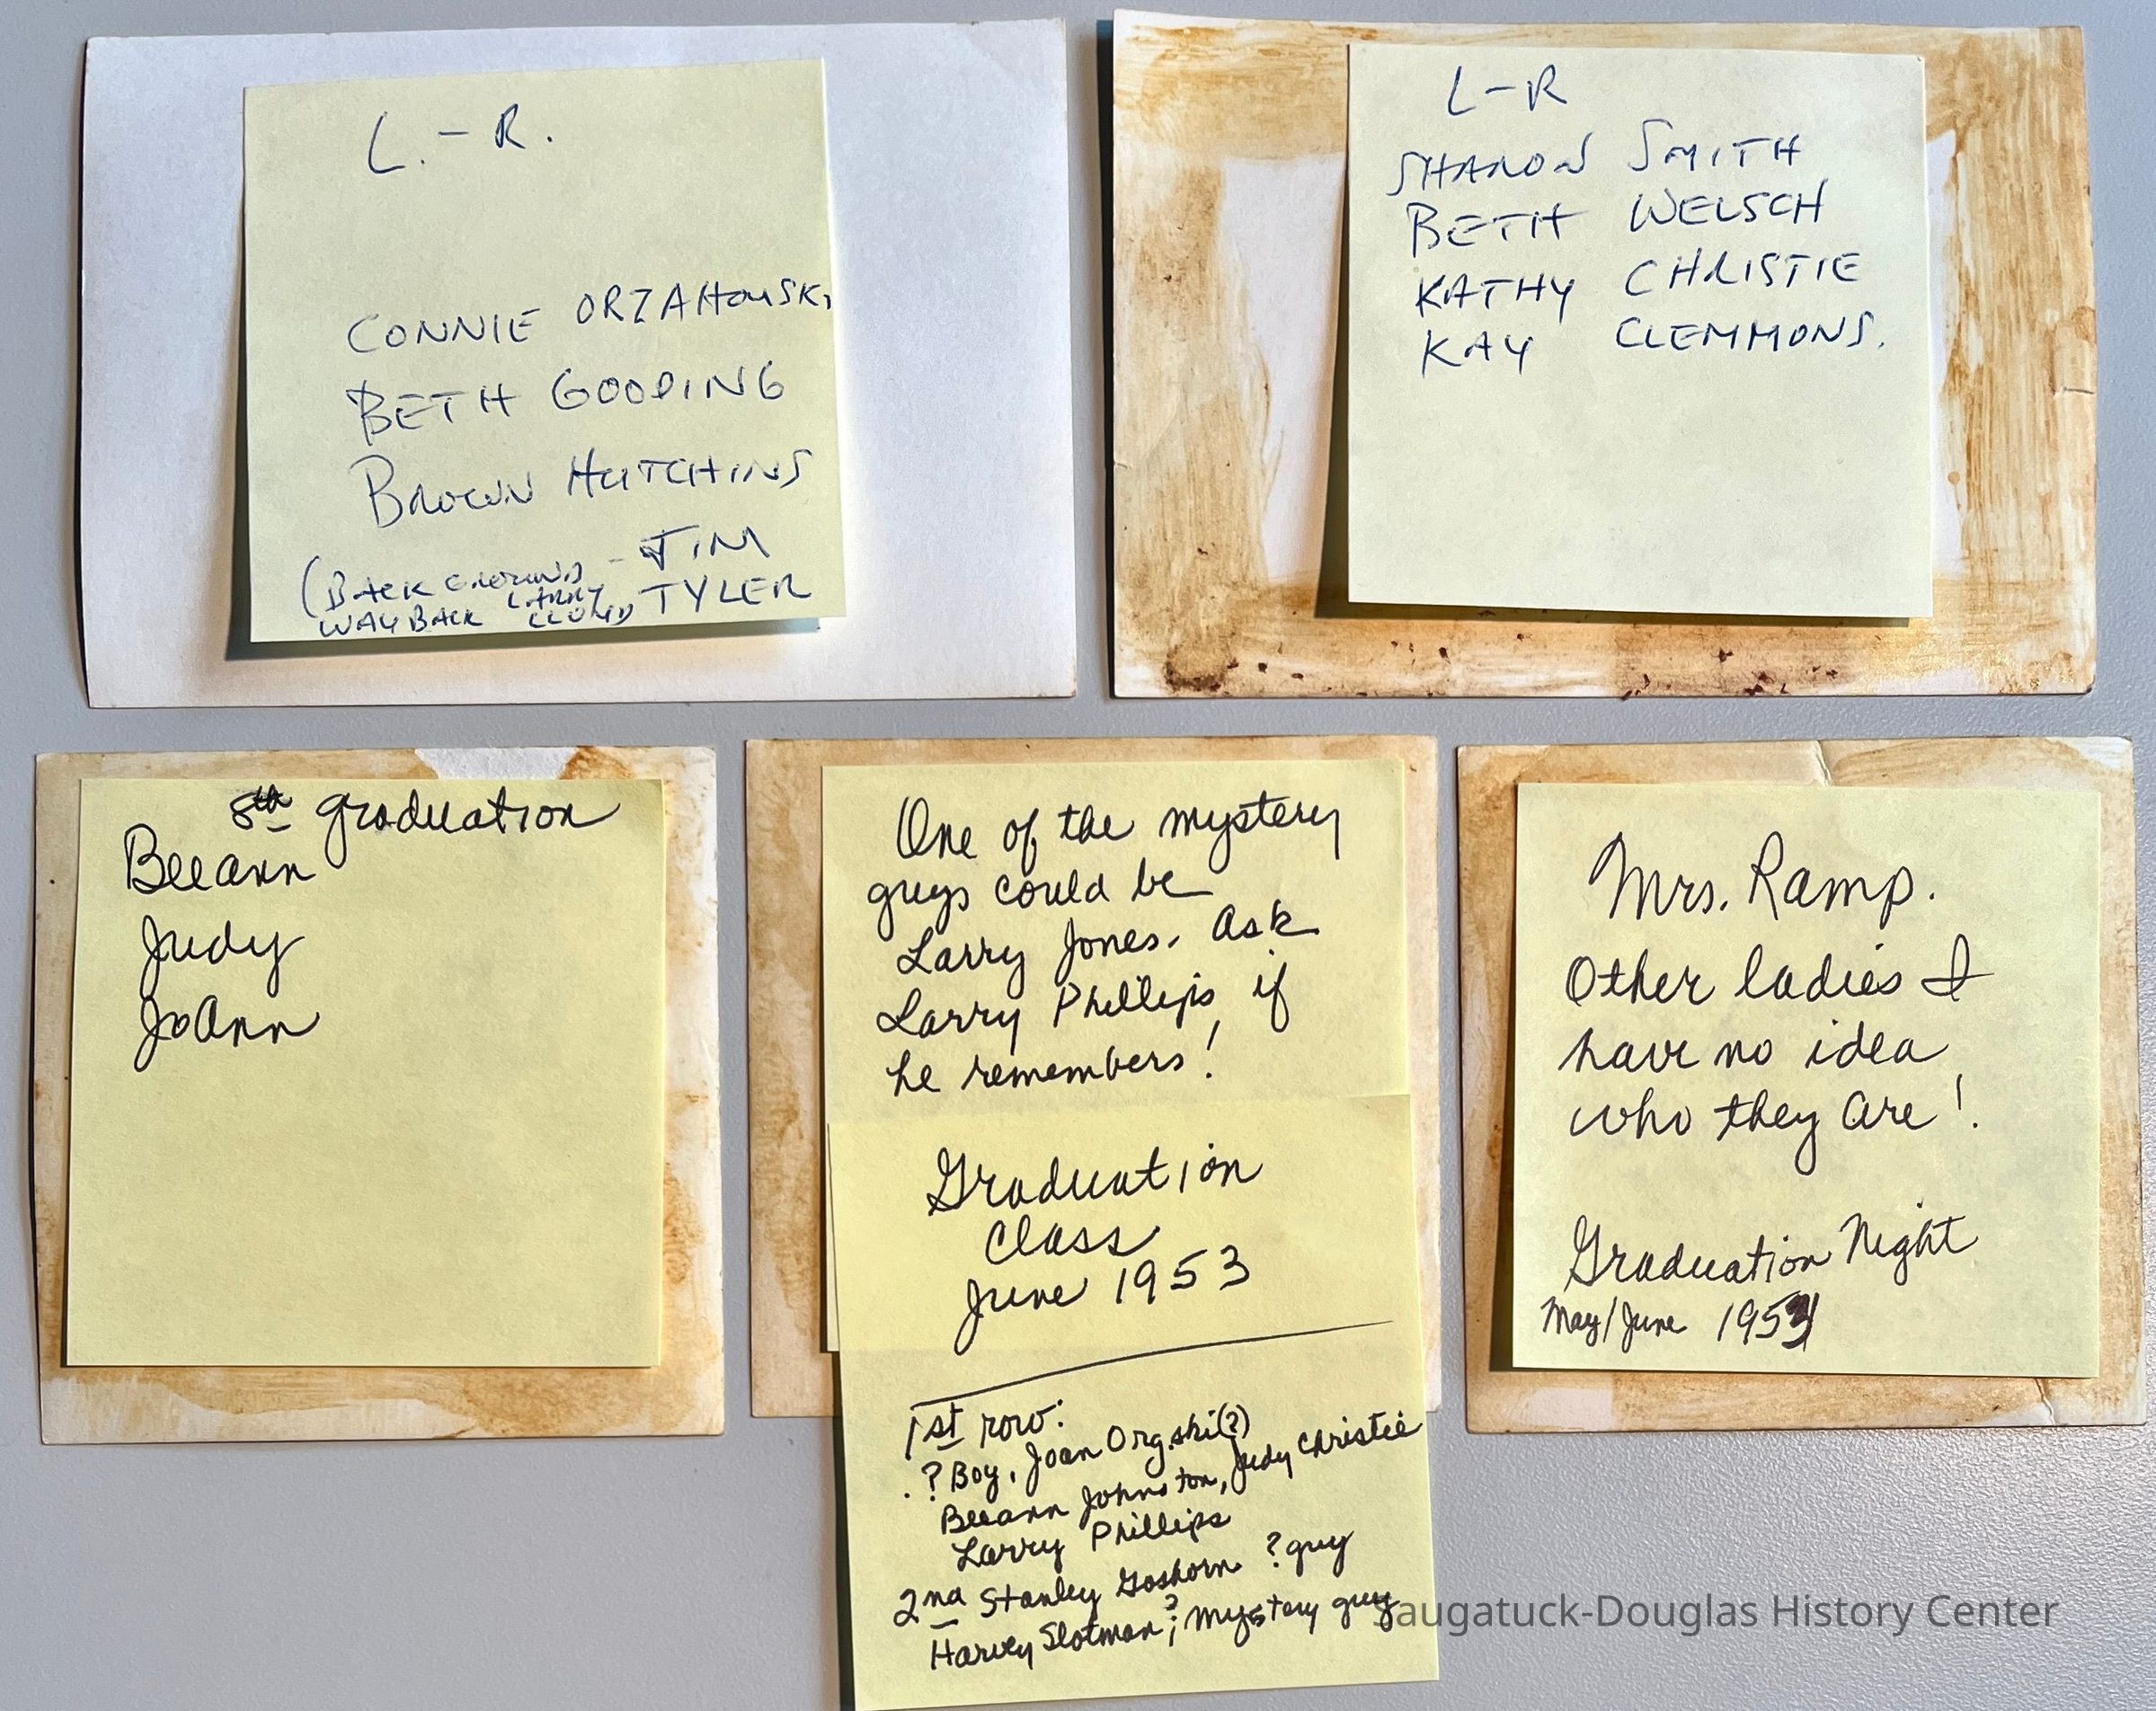 L.-R.
CONNIE ORZAHOWSKI
BETH GOODING
BROWN HUTCHINS
(BACK GROUND - TIM
WAY BACK LARRY TYLER
L-R
SHARON SMITH
BETH WELSCH
KATHY CHRISTIE
KAY CLEMMONS.
8th graduation
Beeann
Judy
JoAnn
One of the mystery
guys could be
Larry Jones. Ask
Larry Phillips if
he remembers!
Graduation
Class
June 1953
1st row:
? Boy, Joan Orgski(?)
Beeann Johnston, Judy Christie
Larry Phillips
2nd Stanley Goshorn ? guy
Harvey Slotman?; mystery guy
Mrs. Ramp.
Other ladies I
have no idea
who they are!
Graduation Night
May/June 1953
Saugatuck-Douglas History Center